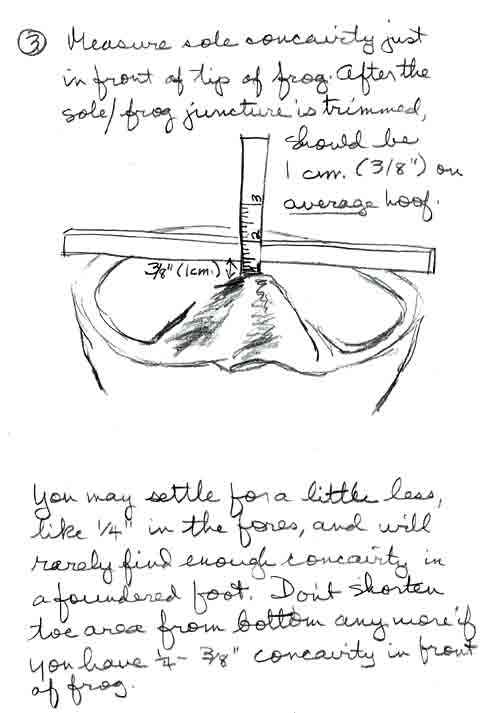 ③ Measure sole concavity just
in front of tip of frog. After the
sole/frog juncture is trimmed,
should be
1 cm. (3/8") on
average hoof.
3
2
3/8" (1cm.)
You may settle for a little less,
like 1/4" in the fores, and will
rarely find enough concavity in
a foundered foot. Don't shorten
toe area from bottom any more if
you have 1/4 - 3/8" concavity in front
of frog.